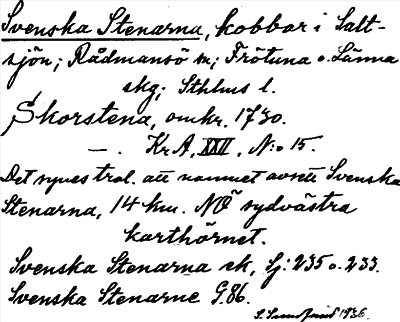 Svenska Stenarna, kobbar i Salt-
sjön; Rådmansö sn; Frötuna o. Länna
skg; Sthlms l.
Skorstena, omkr. 1730.
—. Kr A, XXII, N:o 15.
Det synes trol. att namnet avsett Svenska
Stenarna, 14 km. NÖ sydvästra
karthörnet.
Svenska Stenarna ek, Sj: 235 o. 233.
Svenska Stenarne G.86.
1936.